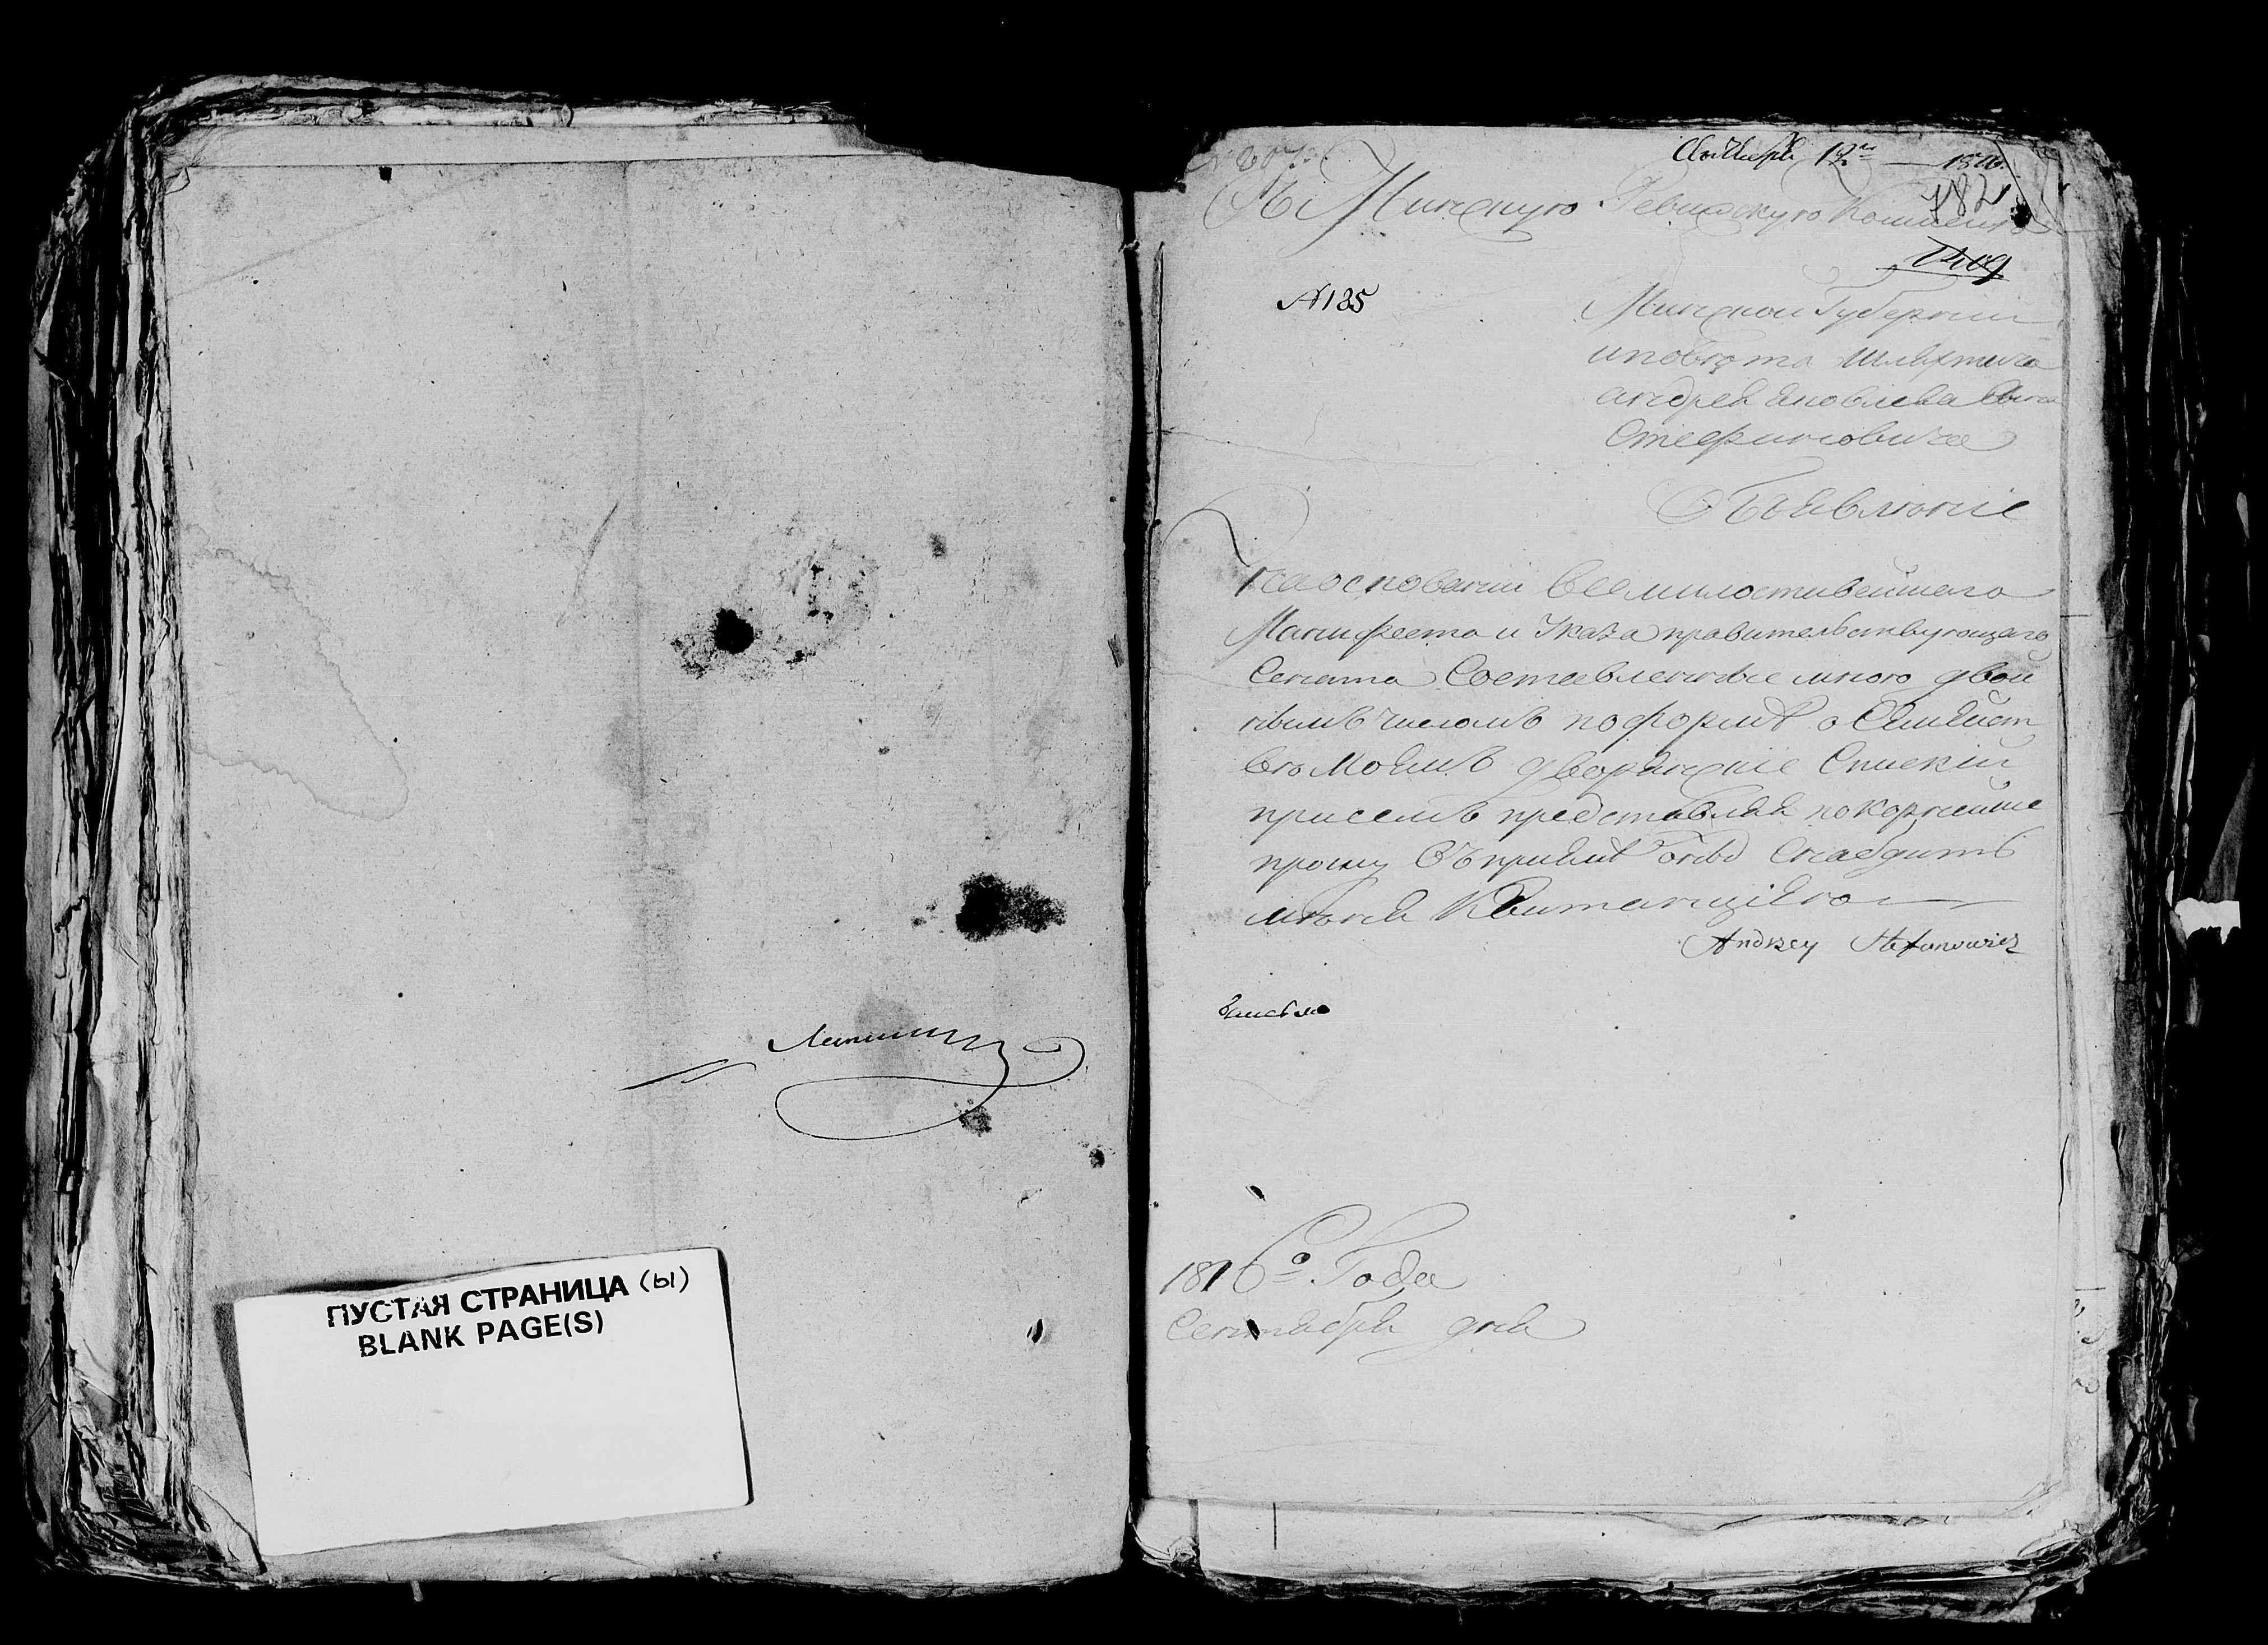 Лапин
ПУСТАЯ СТРАНИЦА (ы)
BLANK PAGE(S)
Сентября 12го 1816
782
Въ Минскую Ревизскую Комисию
1409
№ 135
Минской Губернии
иповѣта шляхтича
андрея яковлева Сына
Стефановича
Объявленіе
Наосновании всемилостивейшаго
Манифеста и Указа правительствующаго
Сената Составленные мною двой
нымъ числомъ поформѣ о Семѣйст
вѣ моемъ дворянскіе Списки
присемъ представляя покорнейше
прошу Въ приемѣ оныхъ Снабдить
мѣня Квитанціею
Andrzey Stefanowicz
181 6го Года
Сентября дня